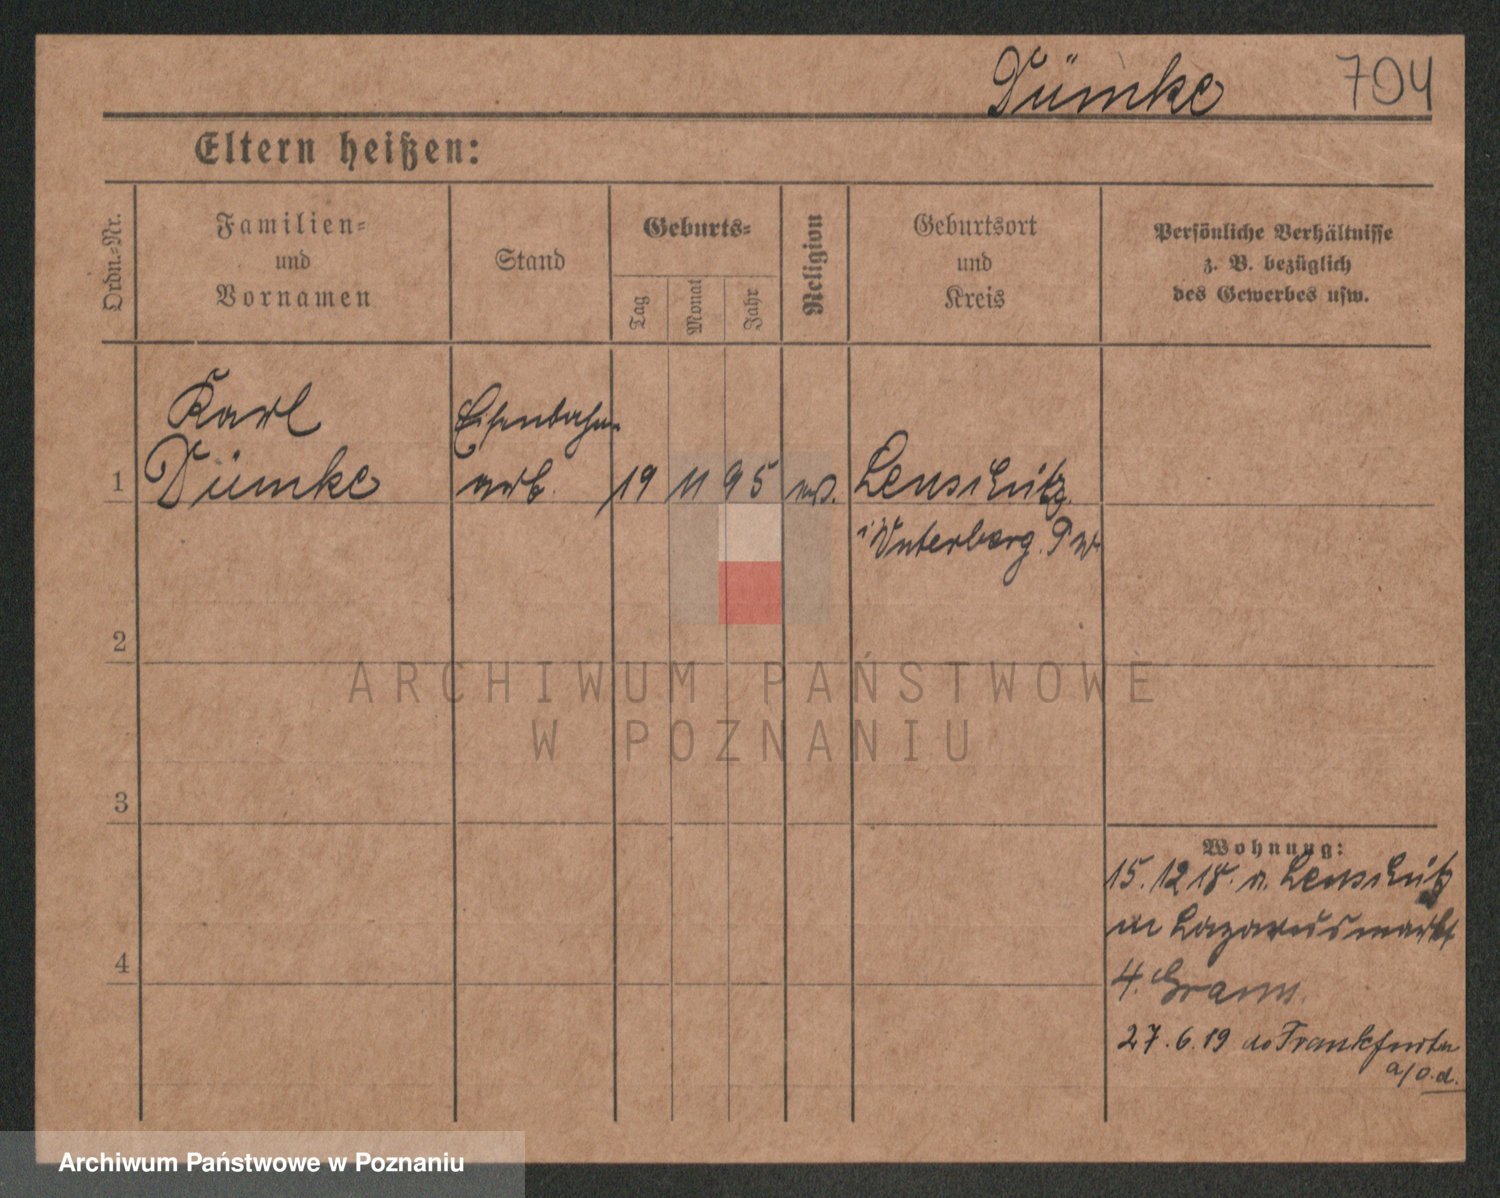 Dümke 704
Eltern heißen:
Ordn.=Nr.
Familien=
und
Vornamen
Stand
Geburts=
Tag
Monat
Jahr
Religion
Geburtsort
und
Kreis
Persönliche Verhältnisse
z. B. bezüglich
des Gewerbes usw.
Karl Eisenbahn
1 Dümke arb. 19 11 95 Lenschütz
i/ Unterberg
2
ARCHIWUM PAŃSTWOWE
W POZNANIU
3
Wohnung:
15.12 18. v. Lenschütz
Lazarusmarkt
4
4. Gramm
27.6.19 do Frankfurtu
a/O.d.
Archiwum Państwowe w Poznaniu